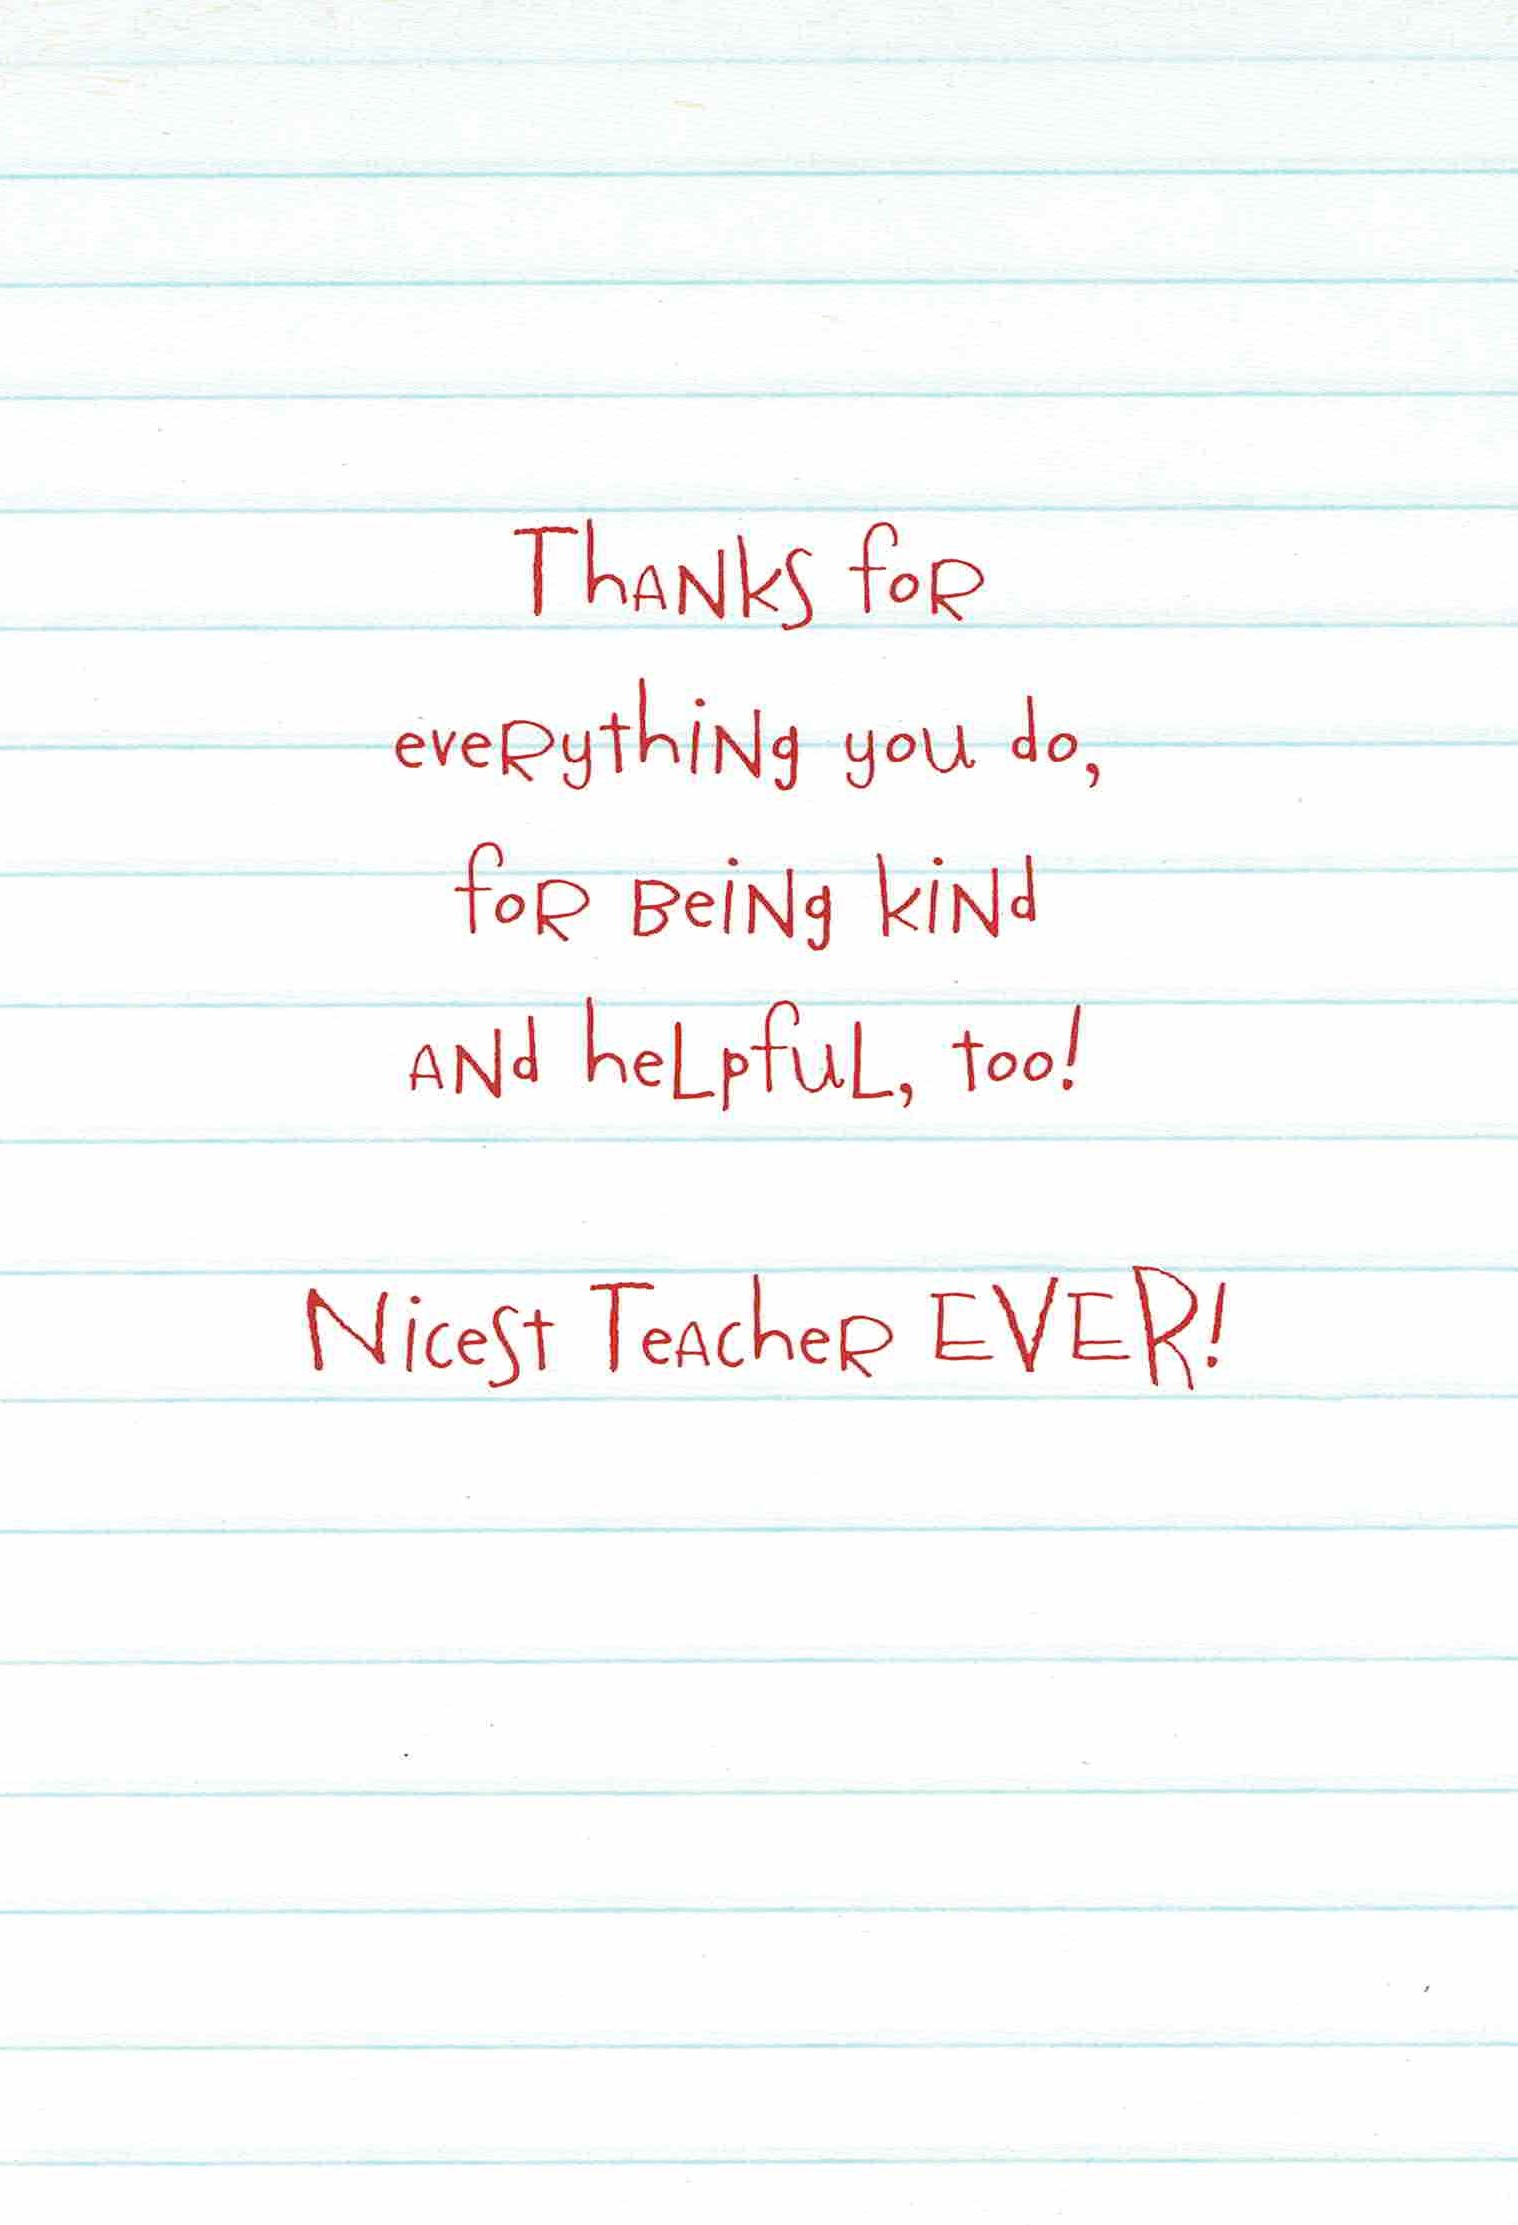 Thanks for
everything you do,
for being kind
and helpful, too!
Nicest Teacher EVER!